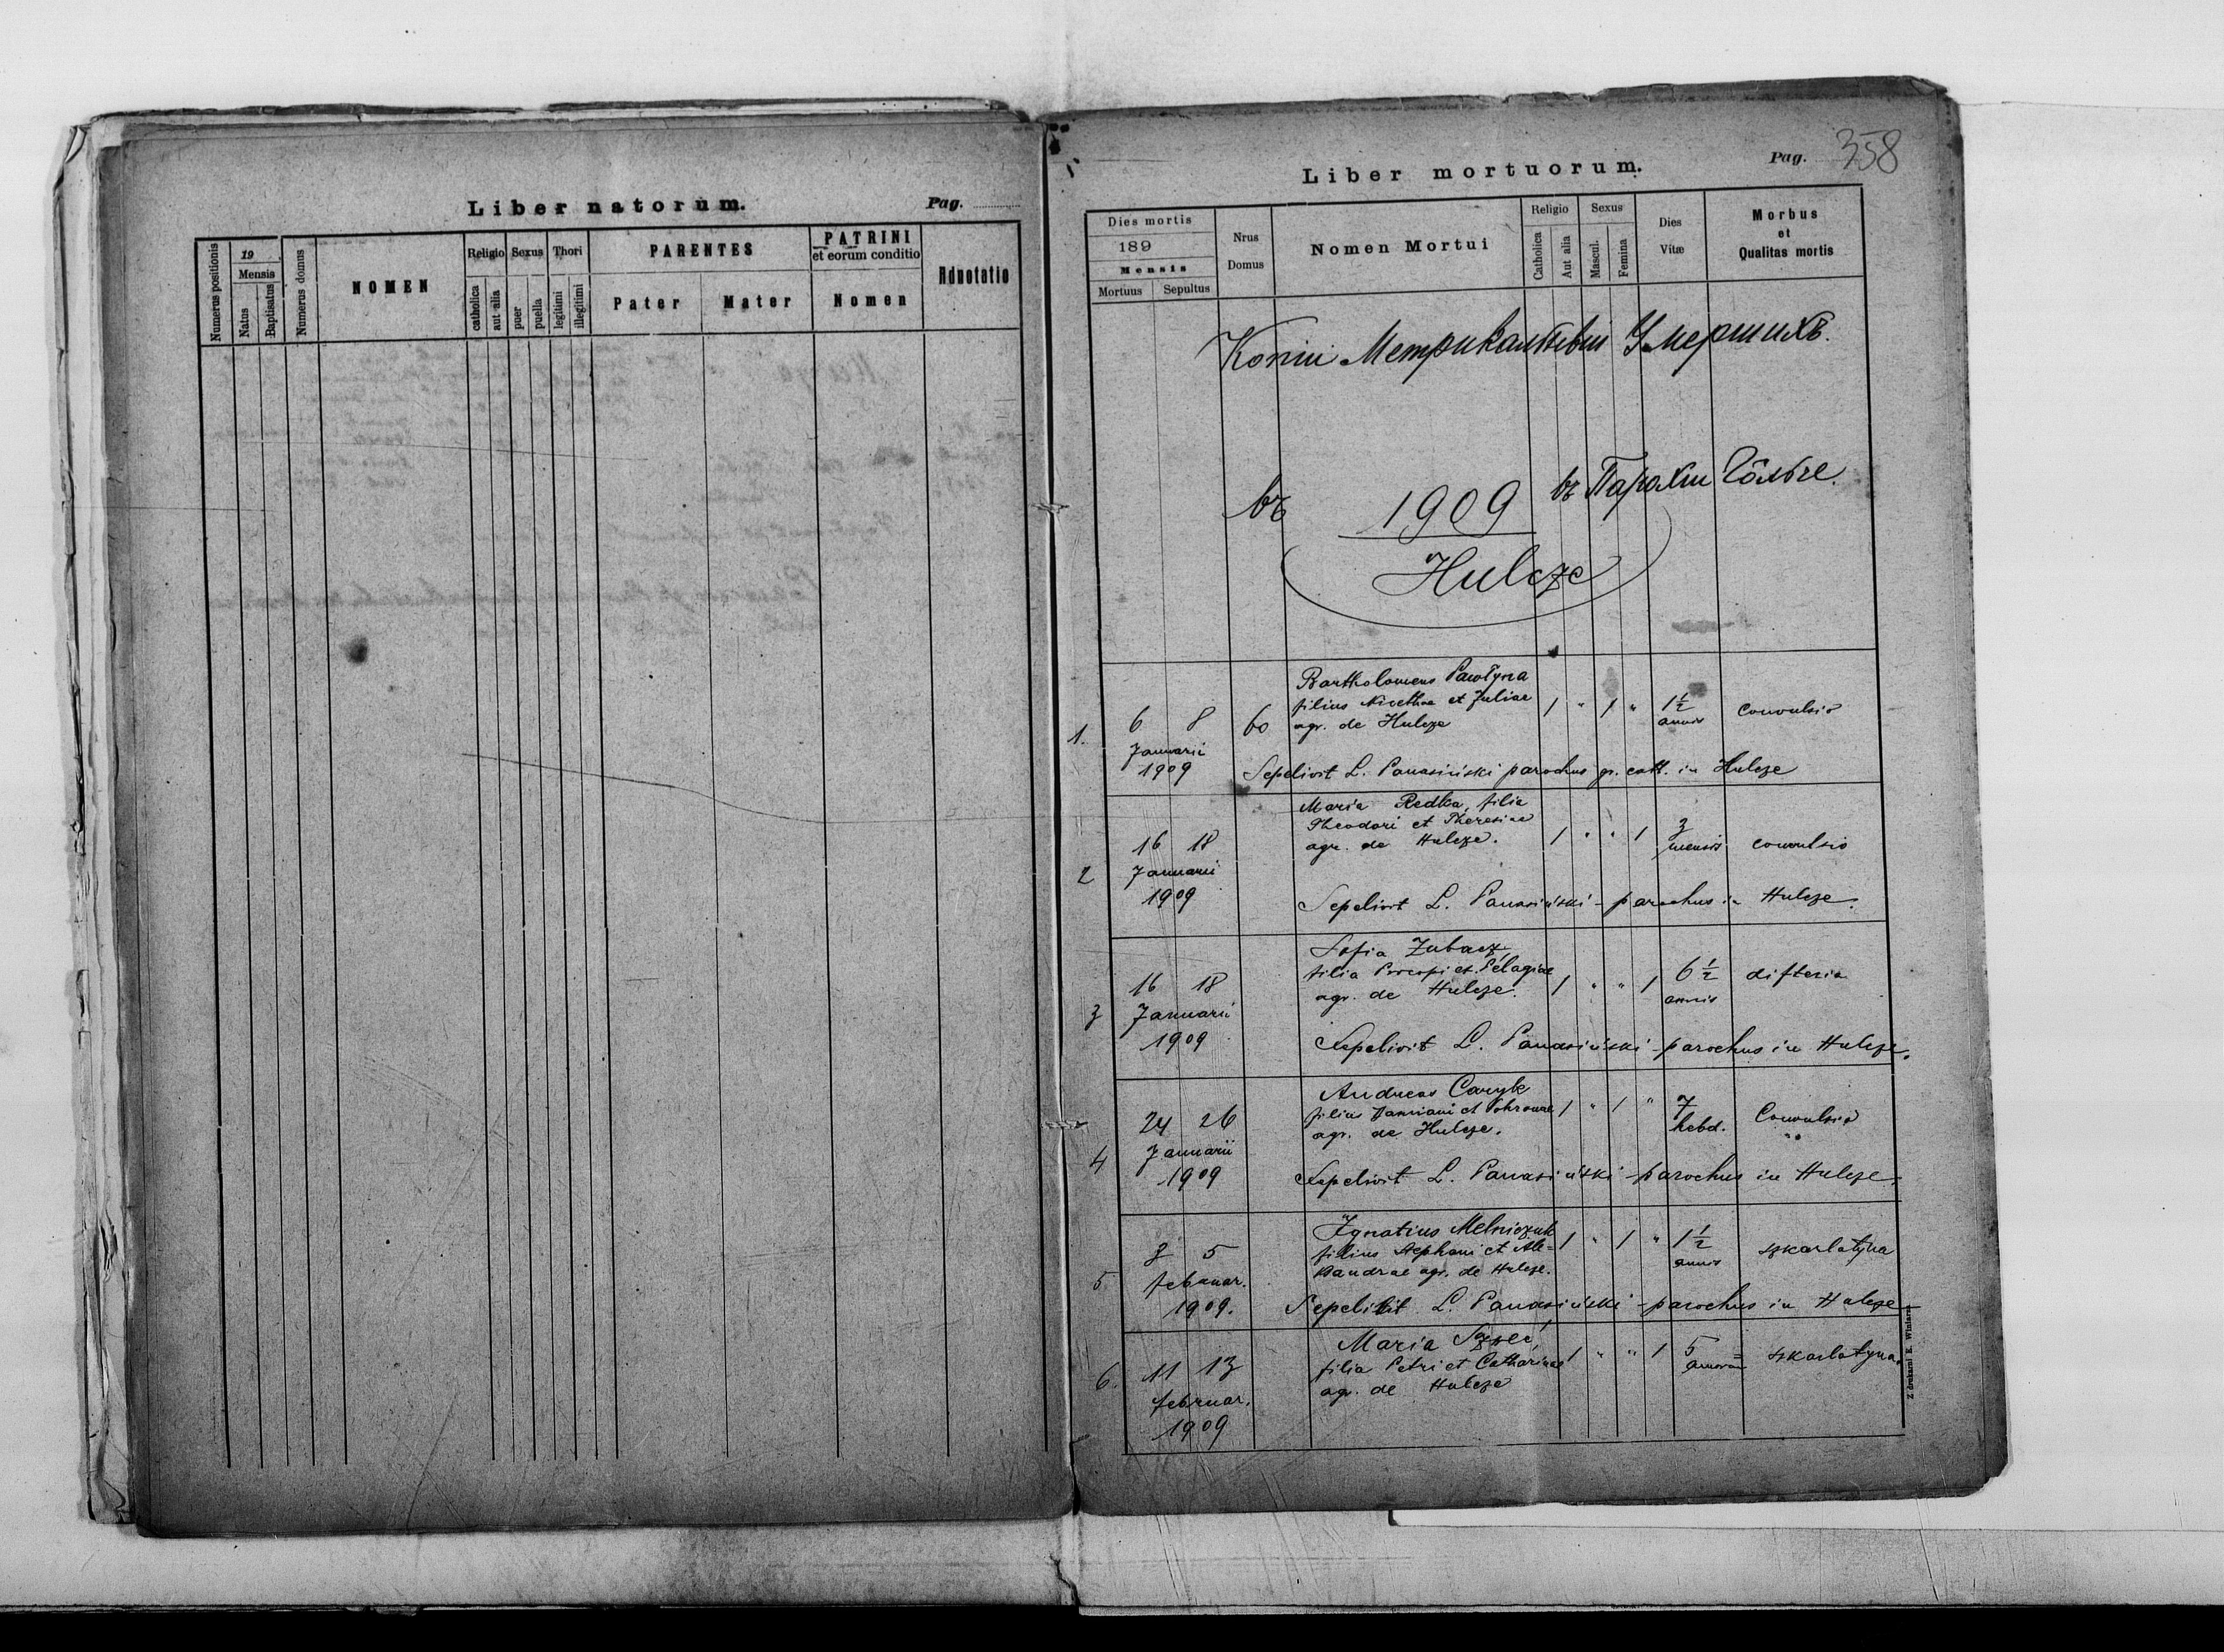 Liber natorum.
Pag.
Numerus positionis
19
Mensis
Natus
Baptisatus
Numerus domus
NOMEN
Religio
catholica
aut alia
Sexus
puer
puella
Thori
legitimi
illegitimi
PARENTES
Pater
Mater
PATRINI
et eorum conditio
Nomen
Adnotatio
Liber mortuorum.
Pag. 358
Dies mortis
189
Mensis
Mortuus
Sepultus
Nrus
Domus
Nomen Mortui
Religio
Catholica
Aut alia
Sexus
Mascul.
Femina
Dies
Vitæ
Morbus
et
Qualitas mortis
Копіи Умершихъ.
въ 1909 въ Парохіи
Hulcze
Bartholomeus
filius Nicethae et Juliae
1. 6 8 60 agr. de Hulcze 1 " 1 " 1½ annis Convulsio
Januarii
1909 Sepelivit L. Panasiński parochus gr. cath. in Hulcze
Maria Redka, filia
Theodori et Theresiae
2 16 18 agr. de Hulcze. 1 " " 1 3 mensis convulsio
Januarii
1909 Sepelivit L. Panasiński - parochus in Hulcze.
Sofia Zubacz,
filia Procopi et Pelagiae
3 16 18 agr. de Hulcze. 1 " " 1 6½ annis difteria
Januarii
1909 Sepelivit L. Panasiński - parochus in Hulcze.
Andreas Caryk
filius Damiani et
4 24 26 agr. de Hulcze. 1 " 1 " 7 hebd. Convulsio
Januarii
1909 Sepelivit L. Panasiński - parochus in Hulcze.
Ignatius Melniczuk
filius Stephani et Ale=
5 5 xandrae agr. de Hulcze. 1 " 1 " 1½ annis szkarlatyna
februar.
1909. Sepelivit L. Panasiński - parochus in Hulcze
Maria
filia Petri et Catharinae
6. 11 13 agr. de Hulcze 1 " " 1 5 szkarlatyna.
februar.
1909
Z drukarni E. Winiarza